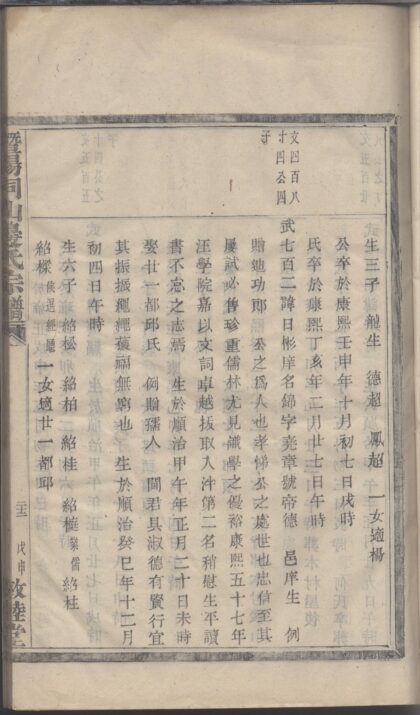 生三子 德超 鳳超 一女適楊
公卒於康熙壬申年十月初七日戌時
氏卒於康熙丁亥年二月廿七日午時
文四百八
十四公四
子
武七百二諱日彬庠名錦字堯章號帝德 邑庠生 例
贈廸功郎 公之爲人也孝悌公之處世也忠信至其
屢試必售珍重儒林尤見識學之優裕康熙五十七年
汪學院嘉以文詞卓越拔取入泮第二名稍慰生平讀
書不忘之志焉 生於順治甲午年正月二十日未時
娶廿一都邱氏 例贈孺人 閫君具淑德有賢行宜
其振振繩繩蓰福無窮也 生於順治癸巳年十二月
初四日午時
生六子 紹松 紹柏 紹桂 紹槐業儒 紹柱
紹樑 一女適廿一都邱
暨陽同山邊氏宗譜
三 戊申 敦睦堂